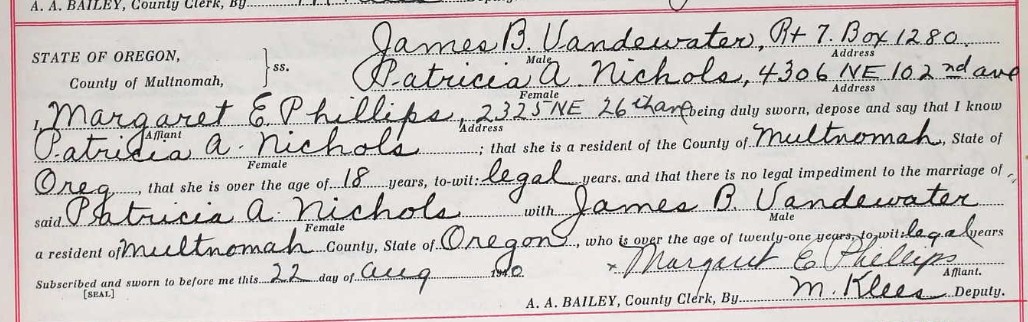 A. A. BAILEY, County Clerk, By
James B. Vandewater, Rt 7. Box 1280.
STATE OF OREGON,
Male
Address
County of Multnomah,
ss.
Patricia A. Nichols, 4306 NE 102nd ave
Female
Address
I, Margaret E. Phillips, 2325 NE 26th ave being duly sworn, depose and say that I know
Affiant
Address
Patricia A. Nichols ; that she is a resident of the County of Multnomah, State of
Female
Oreg, that she is over the age of 18 years, to-wit: legal years. and that there is no legal impediment to the marriage of
said Patricia A. Nichols with James B. Vandewater
Female
Male
a resident of Multnomah County, State of Oregon, who is over the age of twenty-one years, to-wit: legal years
Subscribed and sworn to before me this 22 day of Aug
x Margaret E Phillips
Affiant.
[SEAL]
A. A. BAILEY, County Clerk, By M. Klees Deputy.